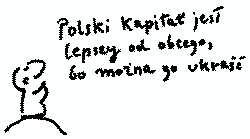 Polski Kapitał jest
lepszy od obcego,
bo można go ukraść